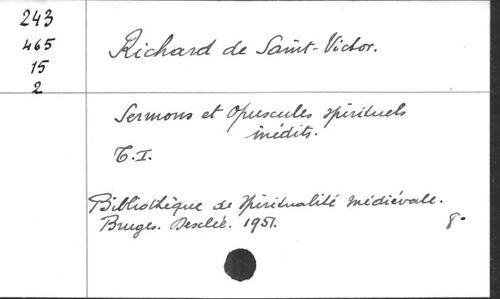 243
465
15
2
Richard de Saint-Victor.
Sermons et Opuscules spirituels
inédits.
T. I.
Bibliothèque de Spiritualité médiévale.
Bruges. Desclée. 1951. 8°